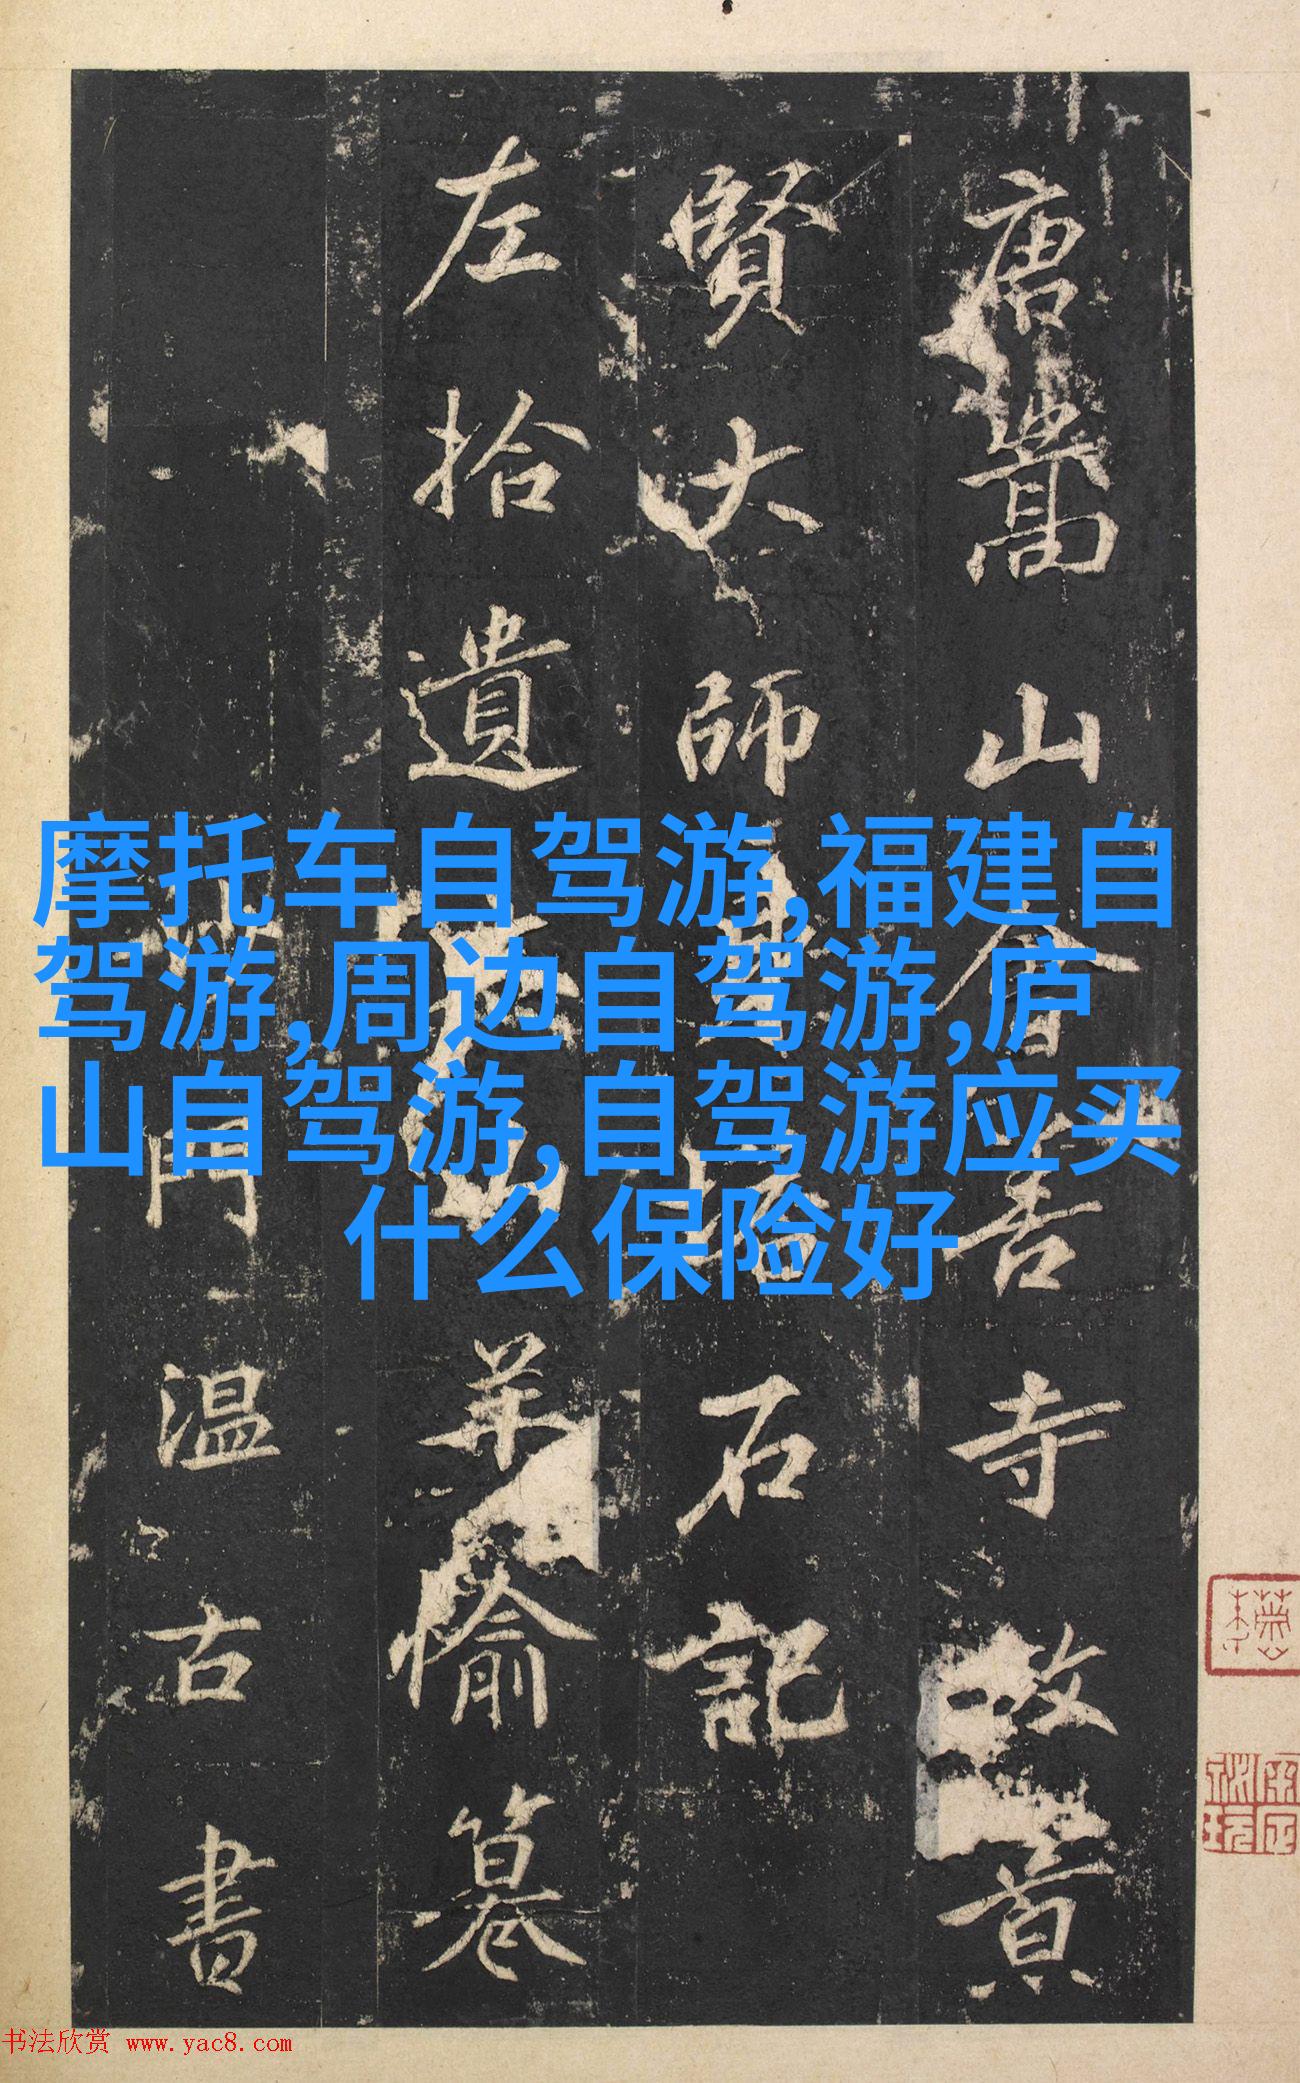 唐嵩山會善寺故景
賢大師身塔石記
左拾遺山羊愉篹
沙門溫古書
摩托车自驾游,福建自
驾游,周边自驾游,庐
山自驾游,自驾游应买
什么保险好
书法欣赏 www.yac8.com